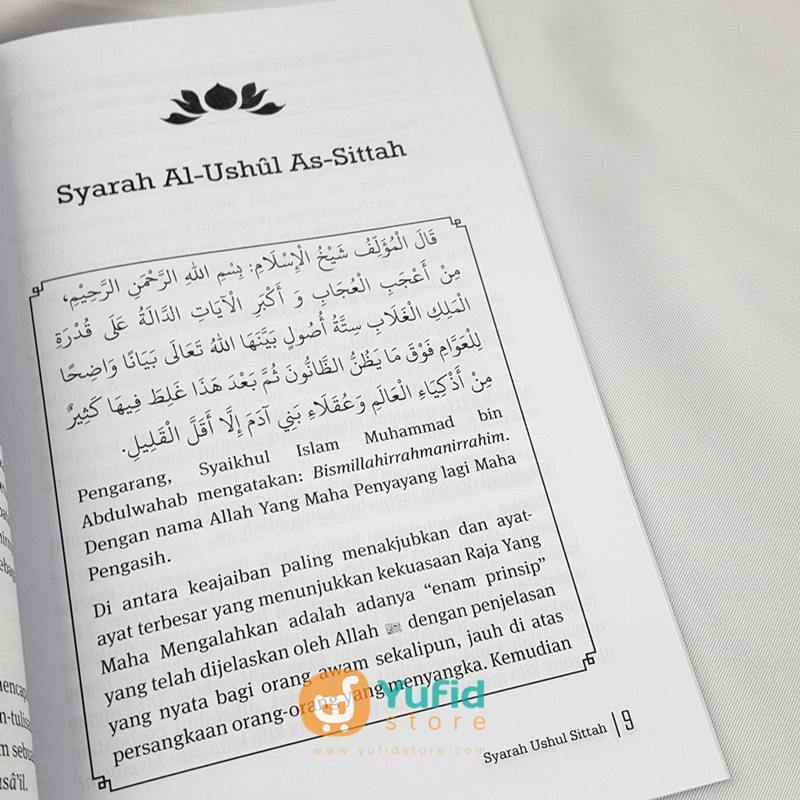 Syarah Al-Ushûl As-Sittah
قَالَ الْمُؤَلِّفُ شَيْخُ الْإِسْلَامِ: بِسْمِ اللهِ الرَّحْمَنِ الرَّحِيْمِ،
مِنْ أَعْجَبِ الْعُجَابِ وَ أَكْبَرِ الْآيَاتِ الدَّالَةُ عَلَى قُدْرَةِ
الْمَلِكِ الْغَلَابِ سِتَّةُ أُصُولٍ بَيَّنَهَا اللهُ تَعَالَى بَيَانًا وَاضِحًا
لِلْعَوَامِ فَوْقَ مَا يَظُنُّ الظَّانُّونَ ثُمَّ بَعْدَ هَذَا غَلِطَ فِيهَا كَثِيرٌ
مِنْ أَذْكِيَاءِ الْعَالَمِ وَعُقَلَاءِ بَنِي آدَمَ إِلَّا أَقَلَّ الْقَلِيلِ.
Pengarang, Syaikhul Islam Muhammad bin
Abdulwahab mengatakan: Bismillahirrahmanirrahim.
Dengan nama Allah Yang Maha Penyayang lagi Maha
Pengasih.
Di antara keajaiban paling menakjubkan dan ayat-
ayat terbesar yang menunjukkan kekuasaan Raja Yang
Maha Mengalahkan adalah adanya “enam prinsip”
yang telah dijelaskan oleh Allah ﷻ dengan penjelasan
yang nyata bagi orang awam sekalipun, jauh di atas
persangkaan orang-orang yang menyangka. Kemudian
Yufid
store
www.yufidstore.com
Syarah Ushul Sittah | 9